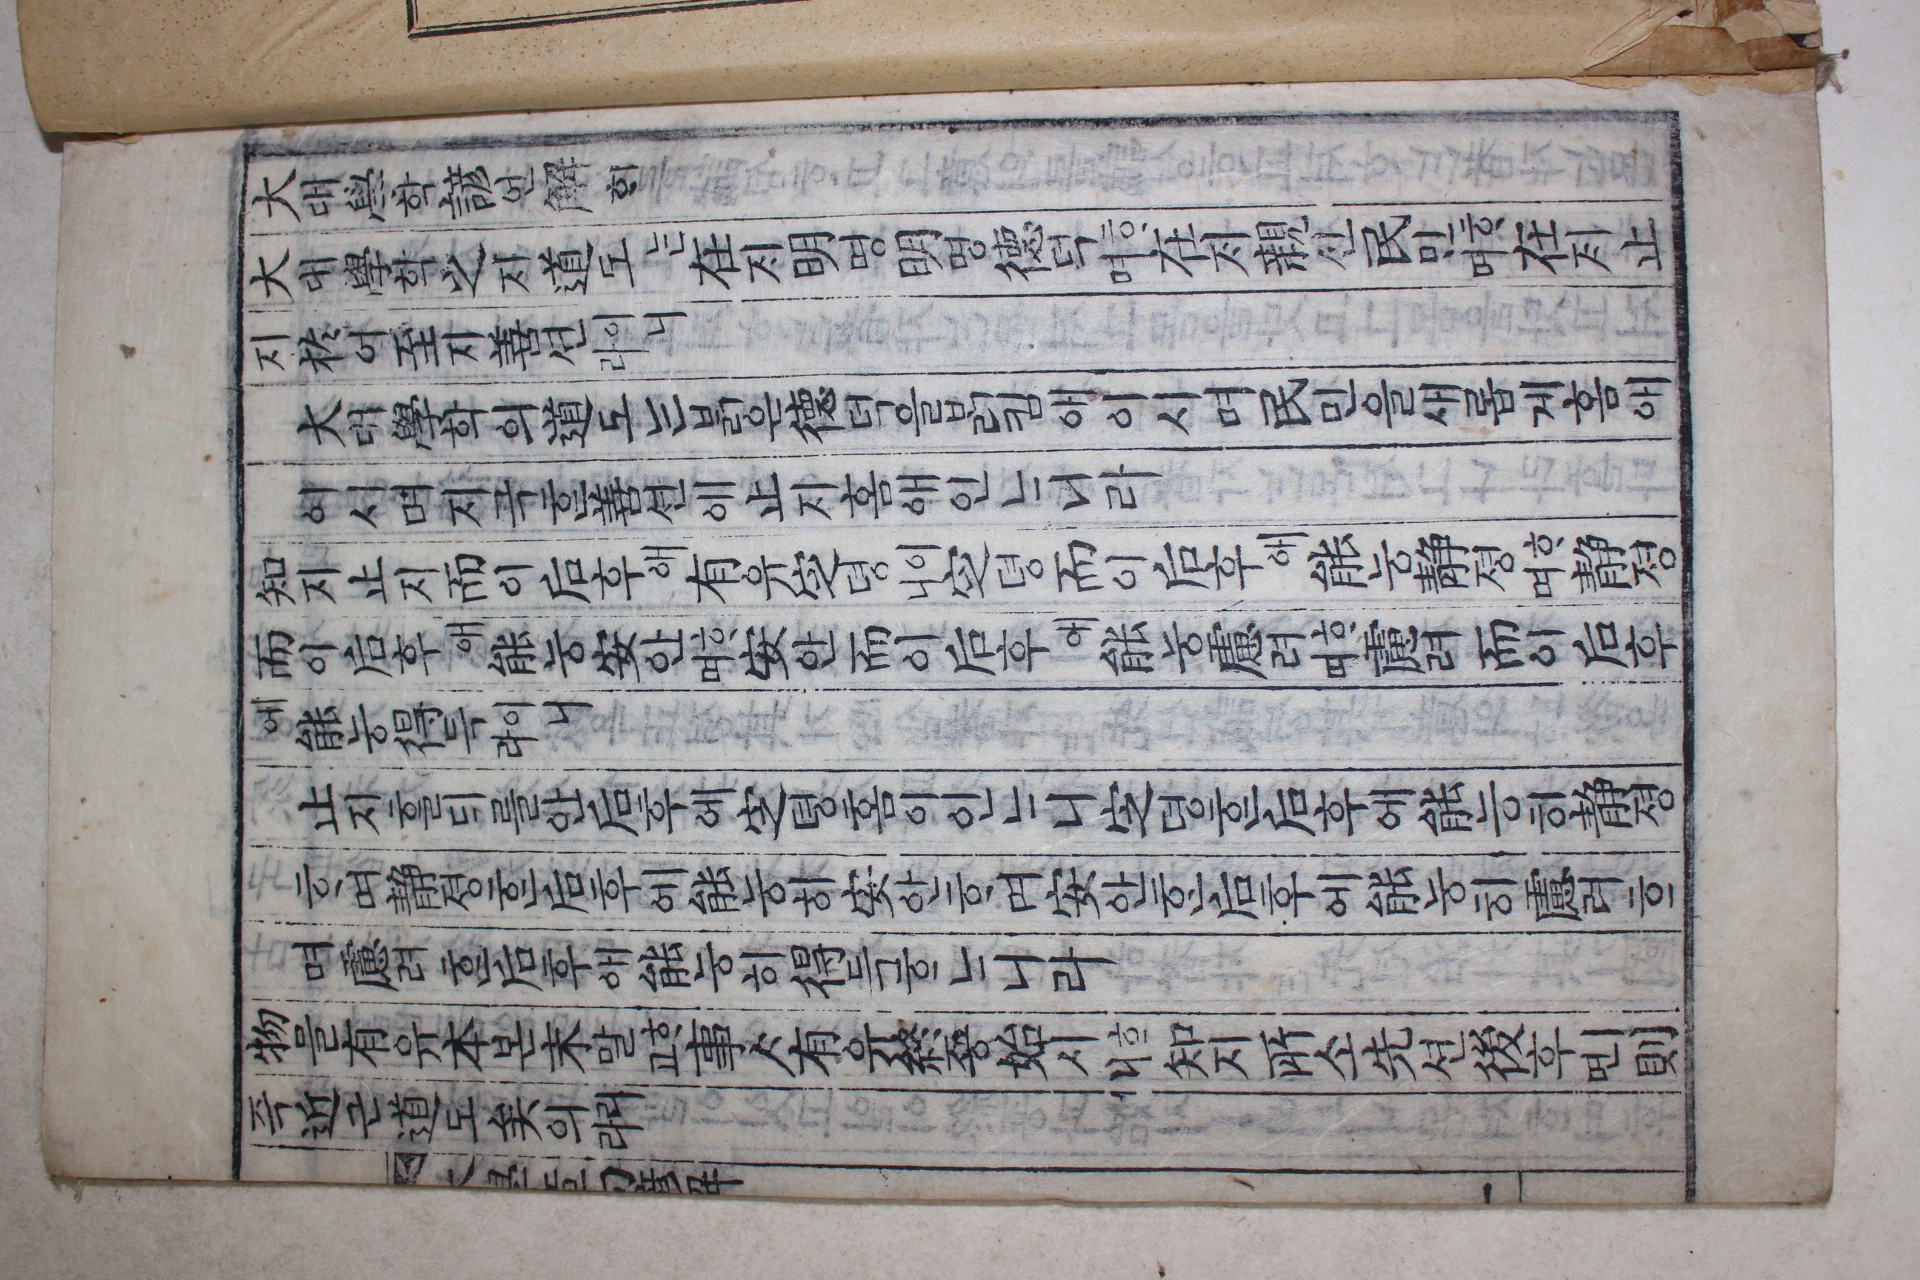 大대學학諺언解ᄒᆡ
大대學학之지道도ᄂᆞᆫ在ᄌᆡ明명明명德덕ᄒᆞ며在ᄌᆡ親신民민ᄒᆞ며在ᄌᆡ止
지於어至지善션이니라
大대學학의道도ᄂᆞᆫᄇᆞᆰ은德덕을ᄇᆞᆰ킴애이시며民민을새롭게홈애
이시며지극ᄒᆞᆫ善션에止지홈애인ᄂᆞ니라
知지止지而이后후에有유定뎡이니定뎡而이后후에能능静졍ᄒᆞ며静졍
而이后후에能능安안ᄒᆞ며安안而이后후에能능慮려ᄒᆞ며慮려而이后후
에能능得득이니라
止지홀ᄃᆡ를안后후에定뎡홈이인ᄂᆞ니定뎡ᄒᆞᆫ后후에能능히静졍
ᄒᆞ며静졍ᄒᆞᆫ后후에能능히安안ᄒᆞ며安안ᄒᆞᆫ后후에能능히慮려ᄒᆞ
며慮려ᄒᆞᆫ后후에能능히得득ᄒᆞᄂᆞ니라
物믈有유本본末말ᄒᆞ고事ᄉᆞ有유終죵始시ᄒᆞ니知지所소先션後후ㅣ면則
즉近근道도矣의리라